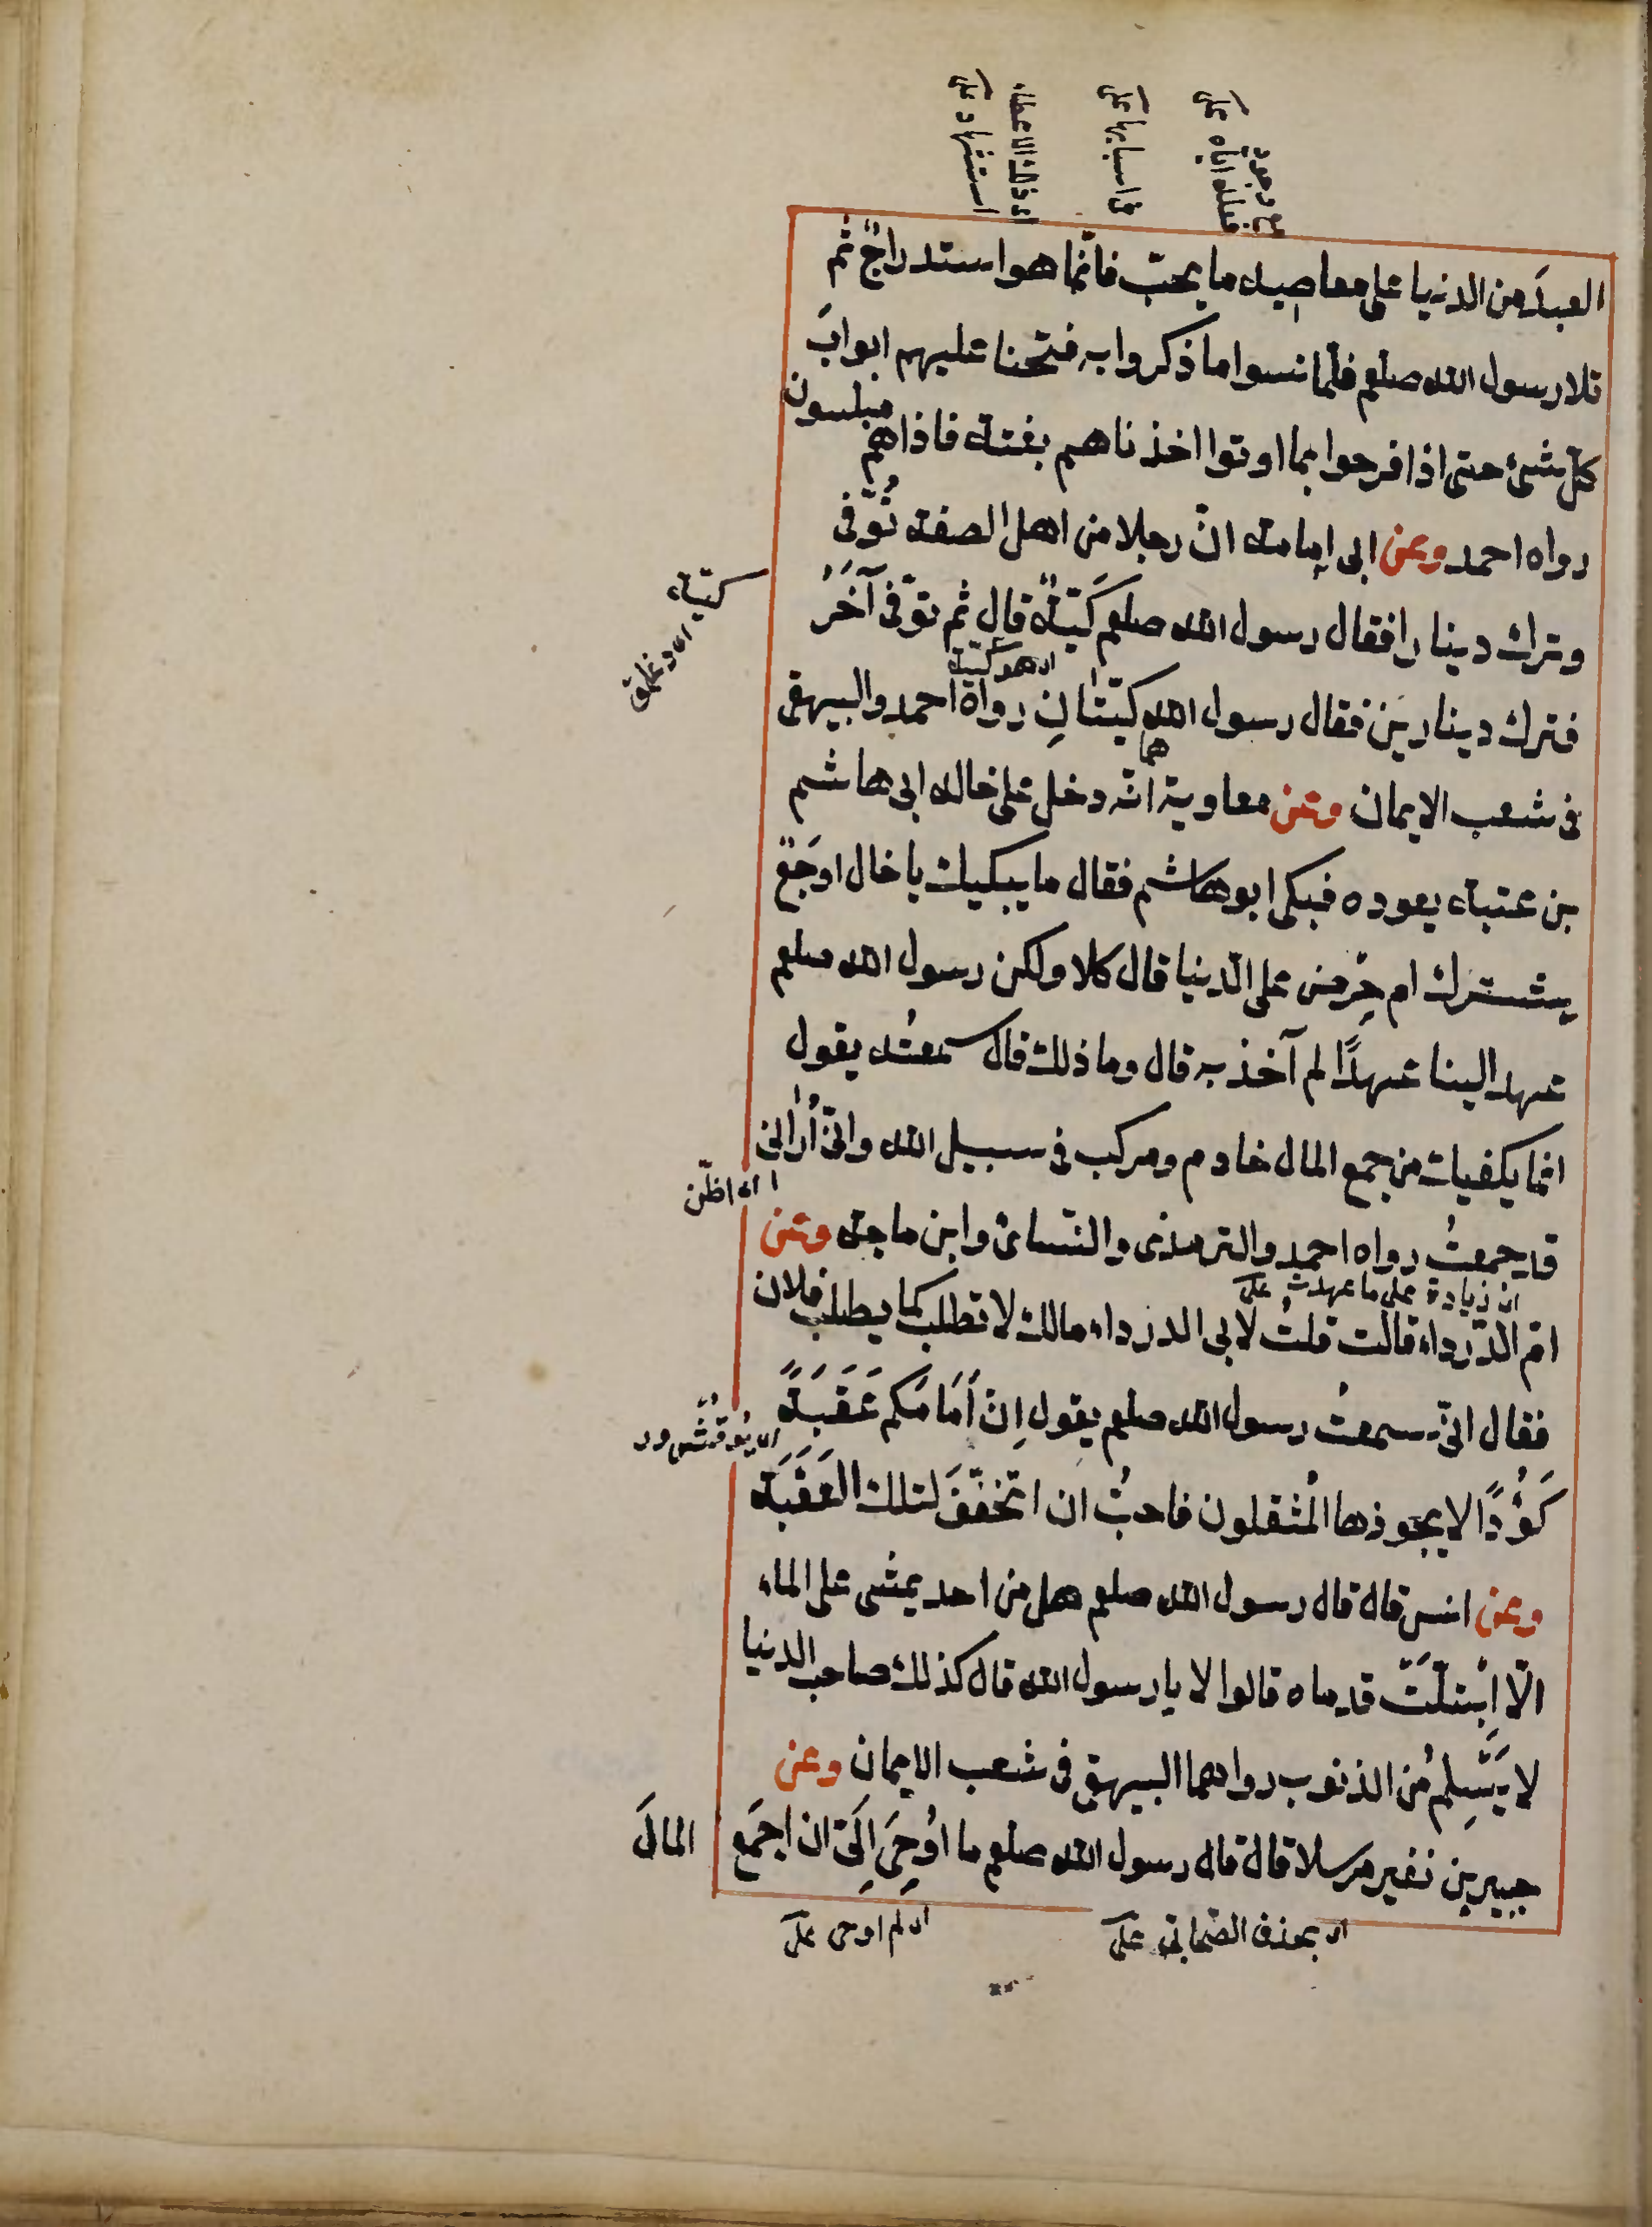 العبدَ من الدنيا على معاصيه ما يحبّ فانّما هو استدراجٌ ثم
تلا رسول الله صلعم فلمّا نسوا ما ذكروا به فتحنا عليهم ابوابَ
كلّ شئ حتى اذا فرحوا بما اوتوا اخذناهم بغتة فاذا هم مبلسون
رواه احمد وعن ابى امامة انّ رجلا من اهل الصفة تُوَفّى
وترك دينارا فقال رسول الله صلعم كَيّةٌ قال ثم توفّى آخَرُ
اى هو كيّة
فترك دينارين فقال رسول الله كيّتانِ رواه احمد والبيهقى
هما
فى شعب الايمان وعن معاوية انّه دخل على خاله ابى هاشم
بن عتبة يعوده فبكى ابو هاشم فقال ما يبكيك يا خال اوَجَعٌ
يشئزك ام حِرص على الدّنيا قال كلا ولكن رسول الله صلعم
عهد الينا عهدًا لم آخذ به قال وما ذلك قال سمعتُه يقول
انما يكفيك من جمع المال خادم ومركب فى سبيل الله وانّى أُرانى
اى اظنّ
قد جمعتُ رواه احمد والترمذى والنّسائى وابن ماجه وعن
اى زيادة على ما عهدت على
امّ الدّرداء قالت قلتُ لابى الدرداء مالك لا تطلب كما يطلب فلان
فقال انّى سمعتُ رسول الله صلعم يقول اِن أَمَامَكم عَقَبَةً
كَؤُدًا لا يجوزها المُثقلون فاحبّ ان اتخفّفَ لتلك العَقَبَة
وعن انس قال قال رسول الله صلعم هل من احد يمشى على الماء
الّا اِبْتلّتْ قدماه قالوا لا يا رسول الله قال كذلك صاحب الدنيا
لا يَسْلم من الذنوب رواهما البيهقى فى شعب الايمان وعن
جبير بن نفير مرسلا قال قال رسول الله صلعم ما اُوحِىَ اِلَىّ ان اجمَع المالَ
اى بحذف الصّحابى على
اى لم اوحى على